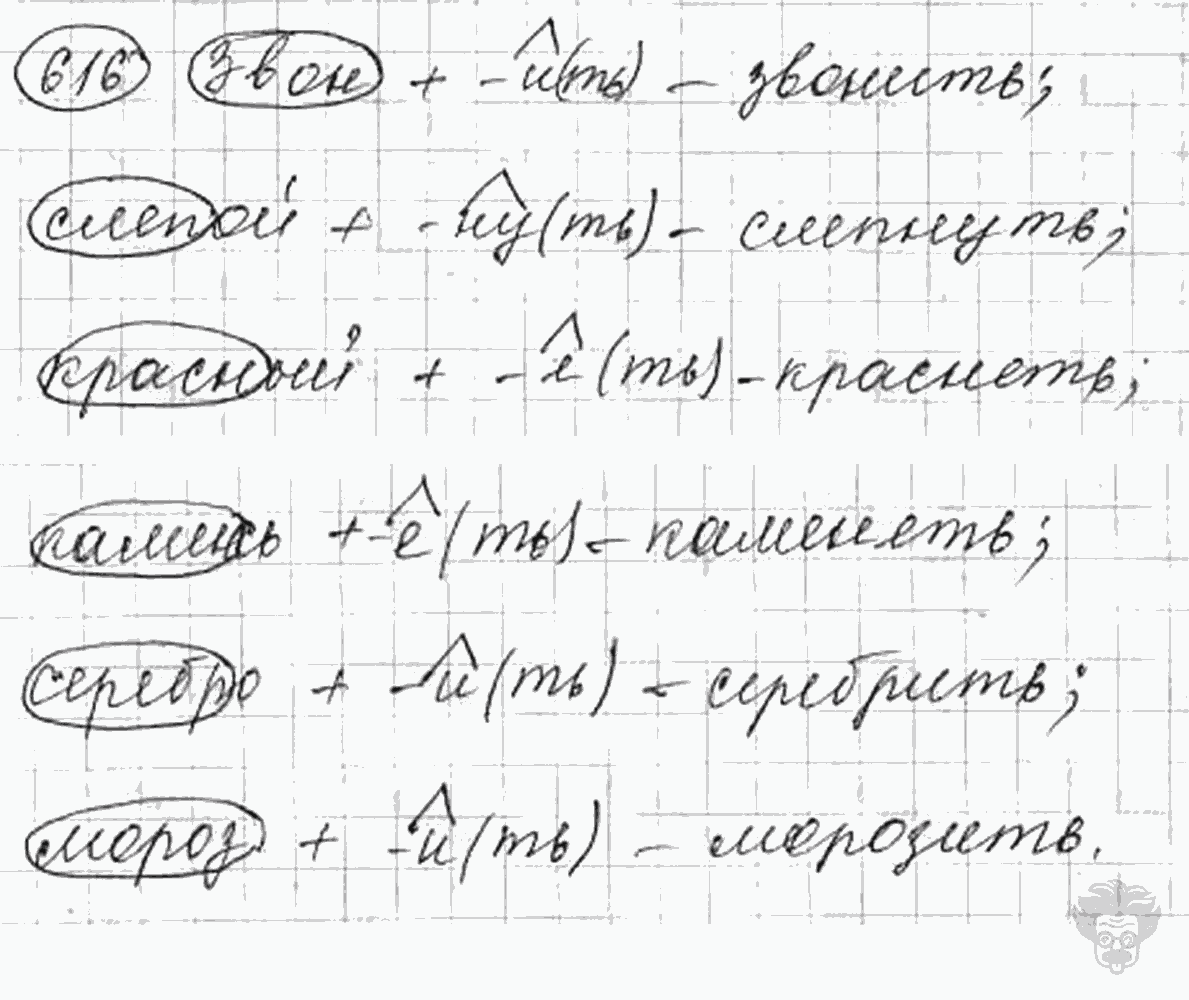 616 Звон + -и(ть) – звонить;
слепой + -ну(ть) – слепнуть;
красный + -е(ть) – краснеть;
камень + -е(ть) – каменеть;
серебро + -и(ть) – серебрить;
мороз + -и(ть) – морозить.